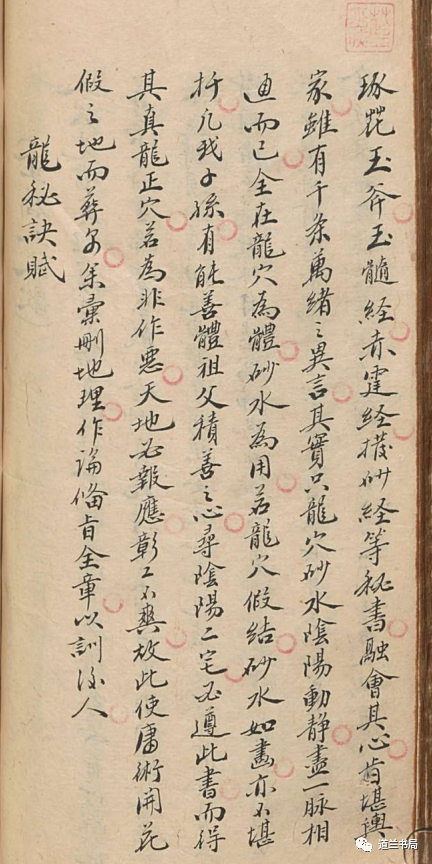 琢玉斧玉髓經赤霆经撥砂経等秘書融會其心旨堪輿
家雖有千条萬緒之異言其實只龍穴砂水陰陽動静盡一脉相
通而已全在龍穴為體砂水為用若龍穴假結砂水如畫亦不堪
扦凡我子孫有能善體祖父積善之心尋陰陽二宅必遵此書而得
其真龍正穴若為非作悪天地必報應彰〻不爽故此使庸術開花
假之地而葬尔余彙刪地理作論俻旨全章以訓後人
龍秘訣賦
道兰书局